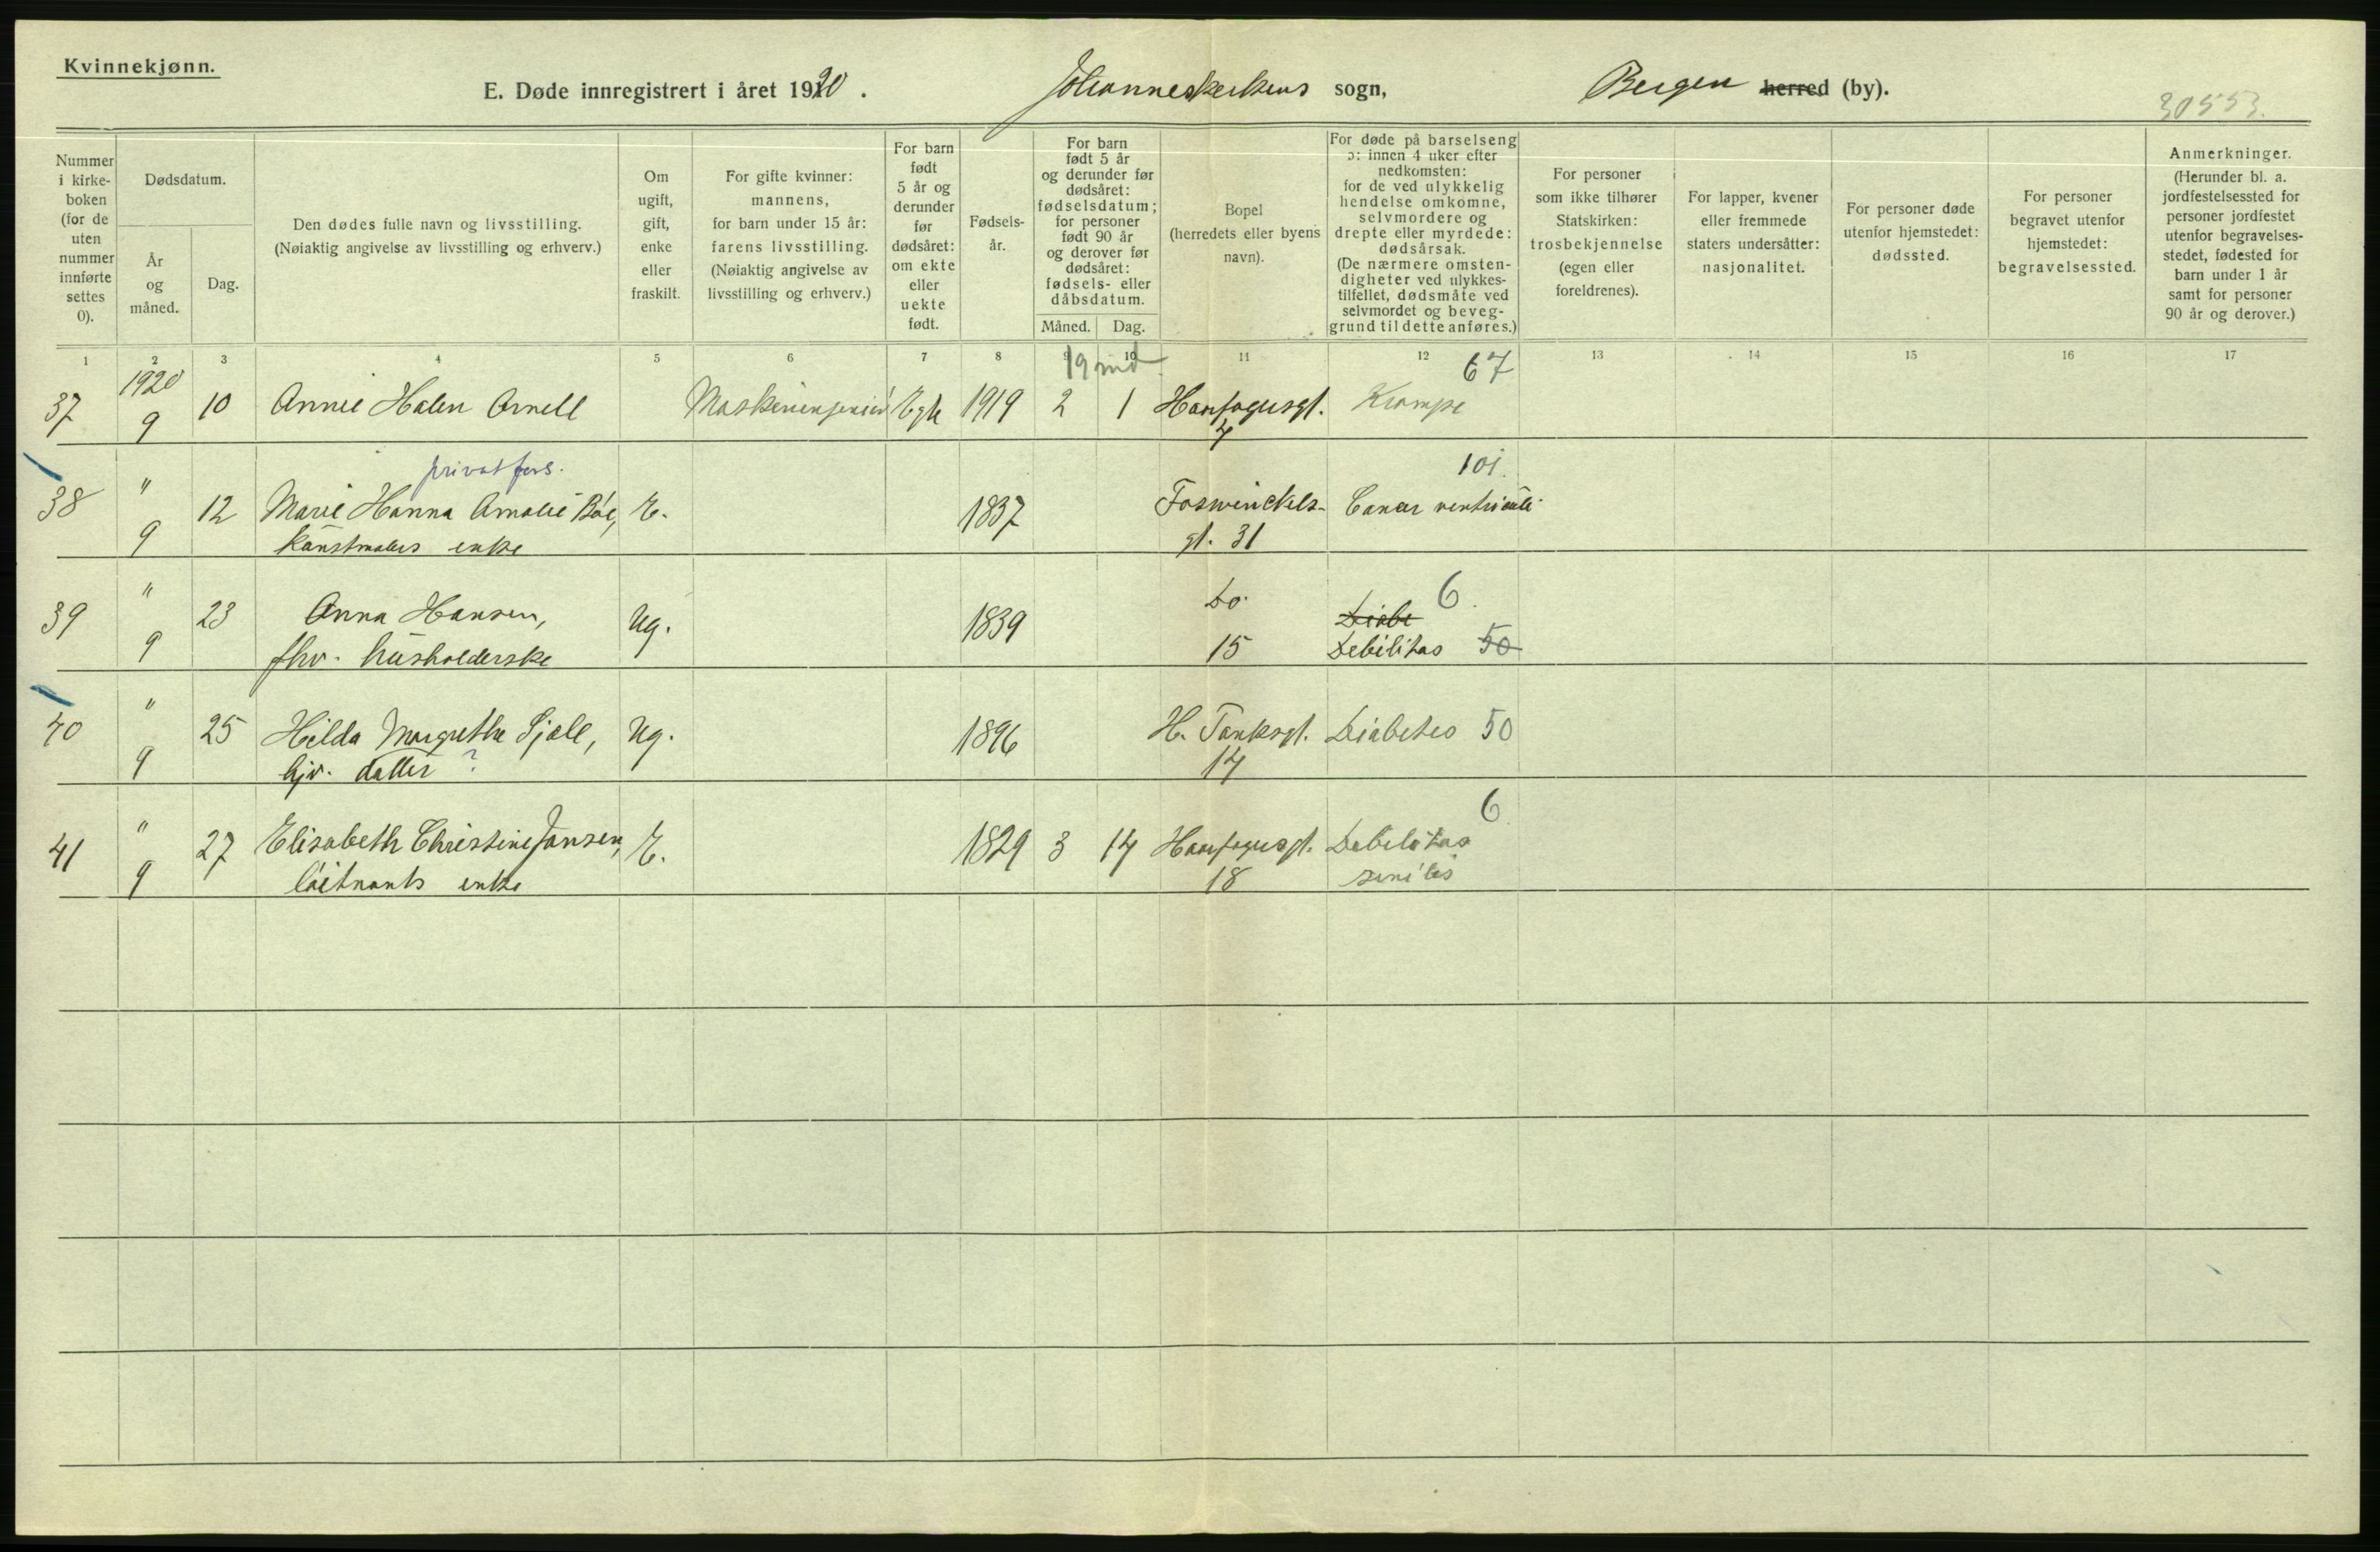 Kvinnekjønn.
E. Døde innregistrert i året 1920. Johanneskirkens sogn, Bergen herred (by).
30553.
Nummer i kirkeboken (for de uten nummer innførte settes 0).
Dødsdatum.
År og måned.
Dag.
Den dødes fulle navn og livsstilling. (Nøiaktig angivelse av livsstilling og erhverv.)
Om ugift, gift, enke eller fraskilt.
For gifte kvinner: mannens, for barn under 15 år: farens livsstilling. (Nøiaktig angivelse av livsstilling og erhverv.)
For barn født 5 år og derunder før dødsåret: om ekte eller uekte født.
Fødselsår.
For barn født 5 år og derunder før dødsåret: fødselsdatum; for personer født 90 år og derover før dødsåret: fødsels- eller dåbsdatum.
Måned. Dag.
Bopel (herredets eller byens navn).
For døde på barselseng ɔ: innen 4 uker efter nedkomsten: for de ved ulykkelig hendelse omkomne, selvmordere og drepte eller myrdede: dødsårsak. (De nærmere omstendigheter ved ulykkestilfellet, dødsmåte ved selvmordet og beveggrund til dette anføres.)
For personer som ikke tilhører Statskirken: trosbekjennelse (egen eller foreldrenes).
For lapper, kvener eller fremmede staters undersåtter: nasjonalitet.
For personer døde utenfor hjemstedet: dødssted.
For personer begravet utenfor hjemstedet: begravelsessted.
Anmerkninger. (Herunder bl. a. jordfestelsessted for personer jordfestet utenfor begravelsesstedet, fødested for barn under 1 år samt for personer 90 år og derover.)
1 2 3 4 5 6 7 8 9 10 11 12 13 14 15 16 17
1920 19 md. 67
37 9 10 Annie Halen Arnell Maskiningeniør Egte 1919 2 1 Haufagusgt. 4 Krampe
privat fors. 101.
38 " 9 12 Marie Hanna Amalie Bøe, E. 1837 Foswinckels- Cancer ventriculi
kunstmalers enke gt. 31
39 " 9 23 Anna Hansen, Ug. 1839 Do. 15 Diabe 6.
fhv. husholderske Debilitas 50
40 " 9 25 Hilda Margrethe Sjøll, Ug. 1896 H. Tanksgt. 14 Diabetes 50
hjv. datter ?
6.
41 " 9 27 Elisabeth Christine Jansen, E. 1829 3 14 Haufagusgt. Debilitas
løitnants enke 18 senilis